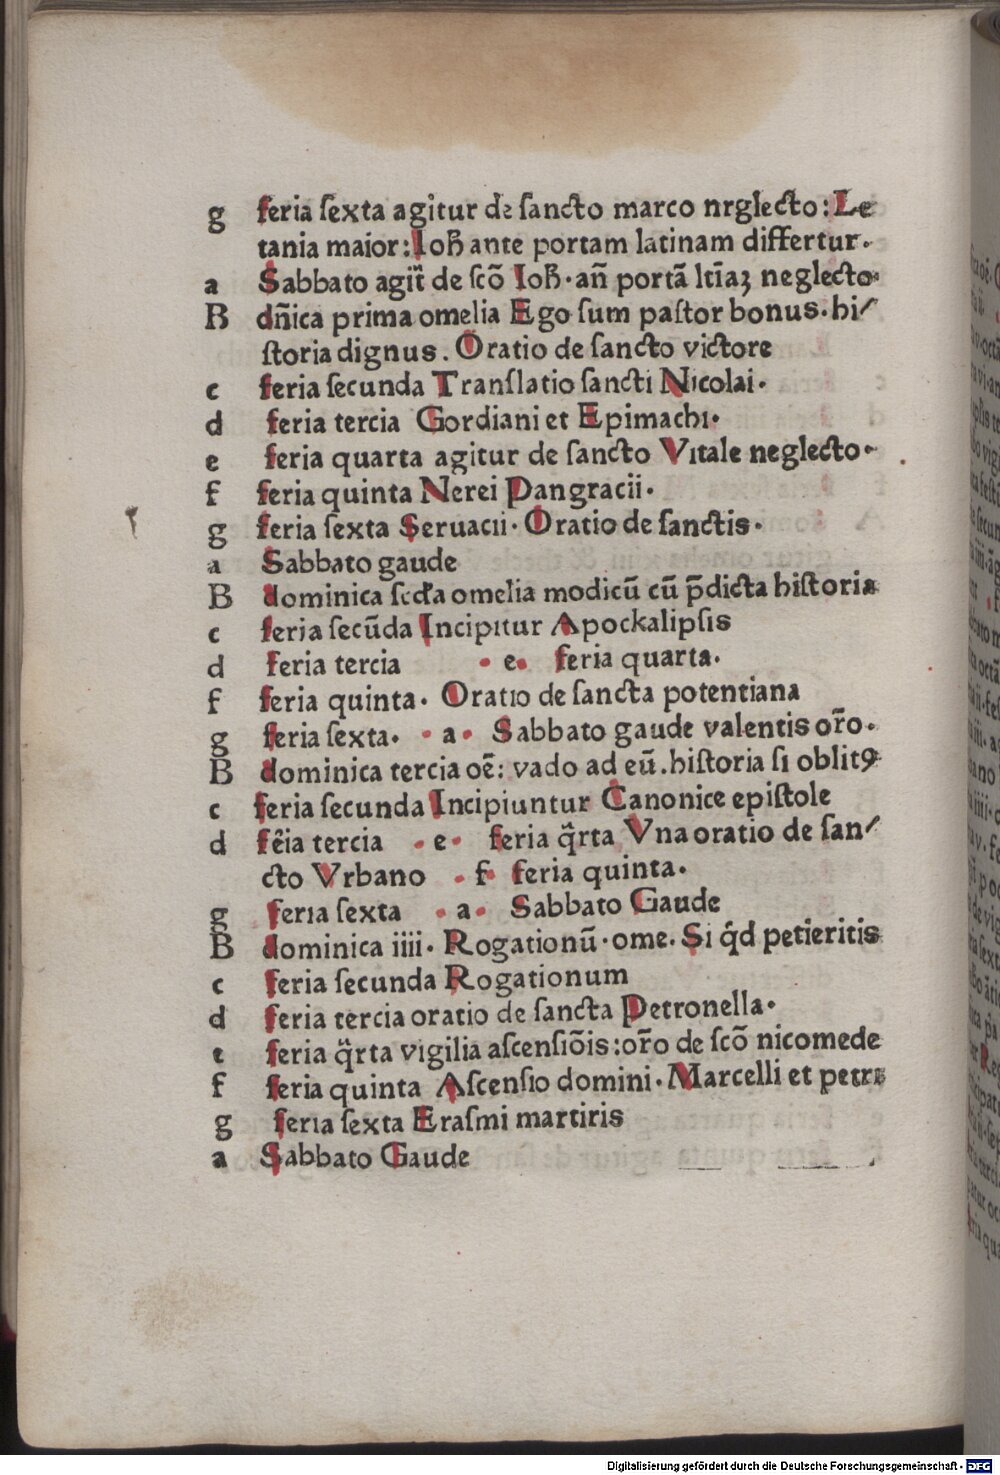 g feria ſexta agitur de ſancto marco nrglecto: Le
tania maior: Ioh̄ ante portam latinam differtur.
a Sabbato agit̄ de ſcō Ioh̄. an̄ portā ltīaꝫ neglecto.
B dn̄ica prima omelia Ego ſum paſtor bonus. hi/
ſtoria dignus. Oratio de ſancto victore
c feria ſecunda Tranſlatio ſancti Nicolai.
d feria tercia Gordiani et Epimachi.
e feria quarta agitur de ſancto Vitale neglecto.
f feria quinta Nerei Pangracii.
g feria ſexta Seruacii. Oratio de ſanctis.
a Sabbato gaude
B dominica ſecd̄a omelia modicū cū p̄dicta hiſtoria
c feria ſecūda Incipitur Apockalipſis
d feria tercia . e. feria quarta.
f feria quinta. Oratio de ſancta potentiana
g feria ſexta. . a. Sabbato gaude valentis or̄o.
B dominica tercia oē: vado ad eū. hiſtoria ſi oblitꝰ
c feria ſecunda Incipiuntur Canonice epiſtole
d fēia tercia . e. feria q̄rta Vna oratio de ſan/
cto Vrbano . f. feria quinta.
g feria ſexta . a. Sabbato Gaude
B dominica iiii. Rogationū. ome. Si q́d petieritis
c feria ſecunda Rogationum
d feria tercia oratio de ſancta Petronella.
e feria q̄rta vigilia aſcenſiōis: or̄o de ſcō nicomede
f feria quinta Aſcenſio domini. Marcelli et petri
g feria ſexta Eraſmi martiris
a Sabbato Gaude
Digitalisierung gefördert durch die Deutsche Forschungsgemeinschaft - DFG